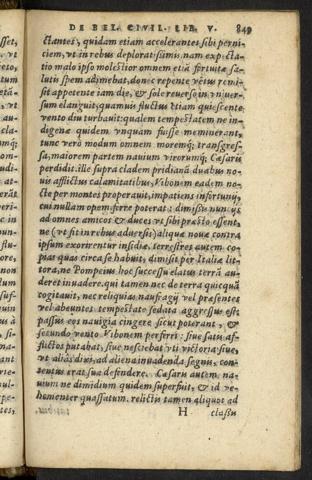 DE BEL. CIVIL. LIB. V. 849
ctantes, quidam etiam accelerantes sibi perni-
ciem, vt in rebus deploratissimis. nam expecta-
tio malo ipso molestior omnem etiā fortuitæ sa-
lutis spem adimebat. donec repente vētus remi-
sit appetente iam die, & sole reuerso in vniuer-
sum elanguit, quamuis fluctus etiam quiescente
vento diu turbauit: qualem tempestatem ne in-
digenæ quidem vnquam fuisse meminerant,
tunc verò modum omnem moremq; transgres-
sa, maiorem partem nauium virorumq; Cæsaris
perdidit. ille supra cladem pridianā duabus no-
uis afflictus calamitatibus, Vibonem eadem no-
cte per montes properauit, impatiens infortunij,
cui nullam opem ferre poterat: dimissis nuncijs
ad omnes amicos & duces vt sibi præsto essent,
ne (vt fit in rebus aduersis) aliquæ nouæ contra
ipsum exorirentur insidiæ. terrestres autem co-
pias quas circa se habuit, dimisit per Italiæ lit-
tora, ne Pompeius hoc successu elatus terrā au-
deret inuadere. qui tamen nec de terra quicquā
cogitauit, nec reliquias naufragij vel præsentes
vel abeuntes tempestate sedata aggressus est:
passus eos nauigia cingere sicut poterant, &
secundo vento Vibonem perferri: siue satis af-
flictos putabat, siue nesciebat vti victoria: siue,
vt aliàs dixi, ad aliena inuadenda segnis, con-
tentus erat sua defendere. Cæsaris autem na-
uium ne dimidium quidem superfuit, & id ve-
hementer quassatum. relictis tamen aliquot ad
H classis